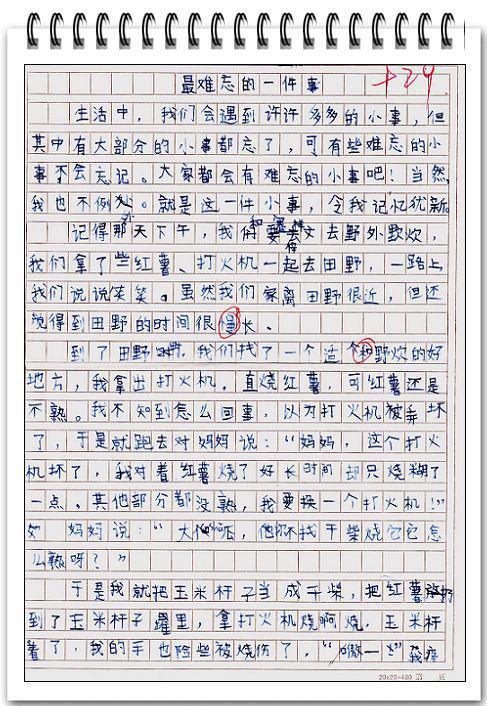 最难忘的一件事
+29
生活中，我们会遇到许许多多的小事，但
其中有大部分的小事都忘了，可有些难忘的小
事不会忘记。大家都会有难忘的小事吧！当然，
我也不例外。就是这一件小事，令我记忆犹新
记得那天下午，我们要去野外野炊，
我们拿了些红薯、打火机一起去田野，一路上
我们说说笑笑。虽然我们家离田野很近，但还
觉得到田野的时间很慢长。
到了田野时，我们找了一个适个和野炊的好
地方，我拿出打火机。直烧红薯，可红薯还是
不熟。我不知到怎么回事，以为打火机被弄坏
了，于是就跑去对妈妈说：“妈妈，这个打火
机坏了，我对着红薯烧了好长时间却只烧糊了
一点。其他部分都没熟，我要换一个打火机！”
妈妈说：“你不找干柴烧它它怎
么熟呀？”
于是我就把玉米杆子当成干柴，把红薯扔
到了玉米杆子里，拿打火机烧啊烧，玉米杆
着了，我的手也险些被烧伤了，“嗷一”我
20x20=400 第 页